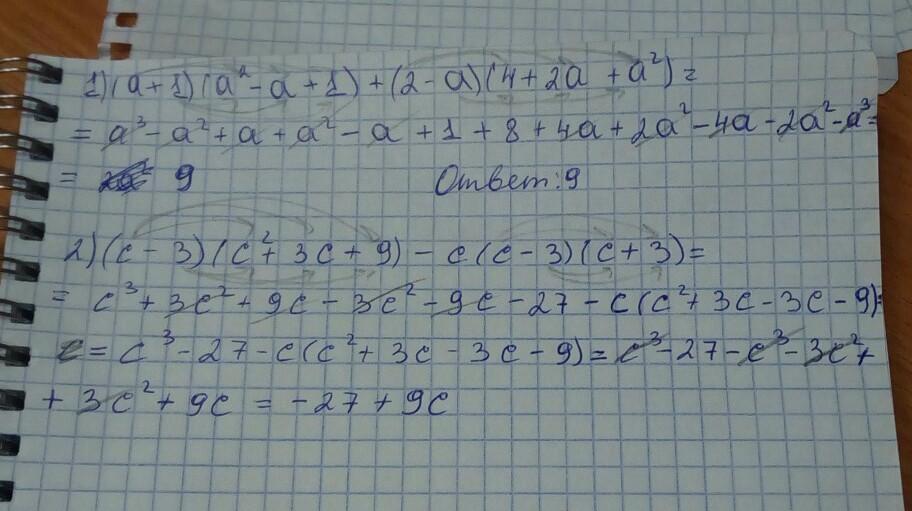 1) (a+1)(a²-a+1)+(2-a)(4+2a+a²)=
= a³-a²+a+a²-a+1+8+4a+2a²-4a-2a²-a³=
= 9 Ответ: 9
2) (c-3)(c²+3c+9)-c(c-3)(c+3)=
= c³+3c²+9c-3c²-9c-27-c(c²+3c-3c-9)=
= c³-27-c(c²+3c-3c-9)=c³-27-c³-3c²+
+3c²+9c=-27+9c